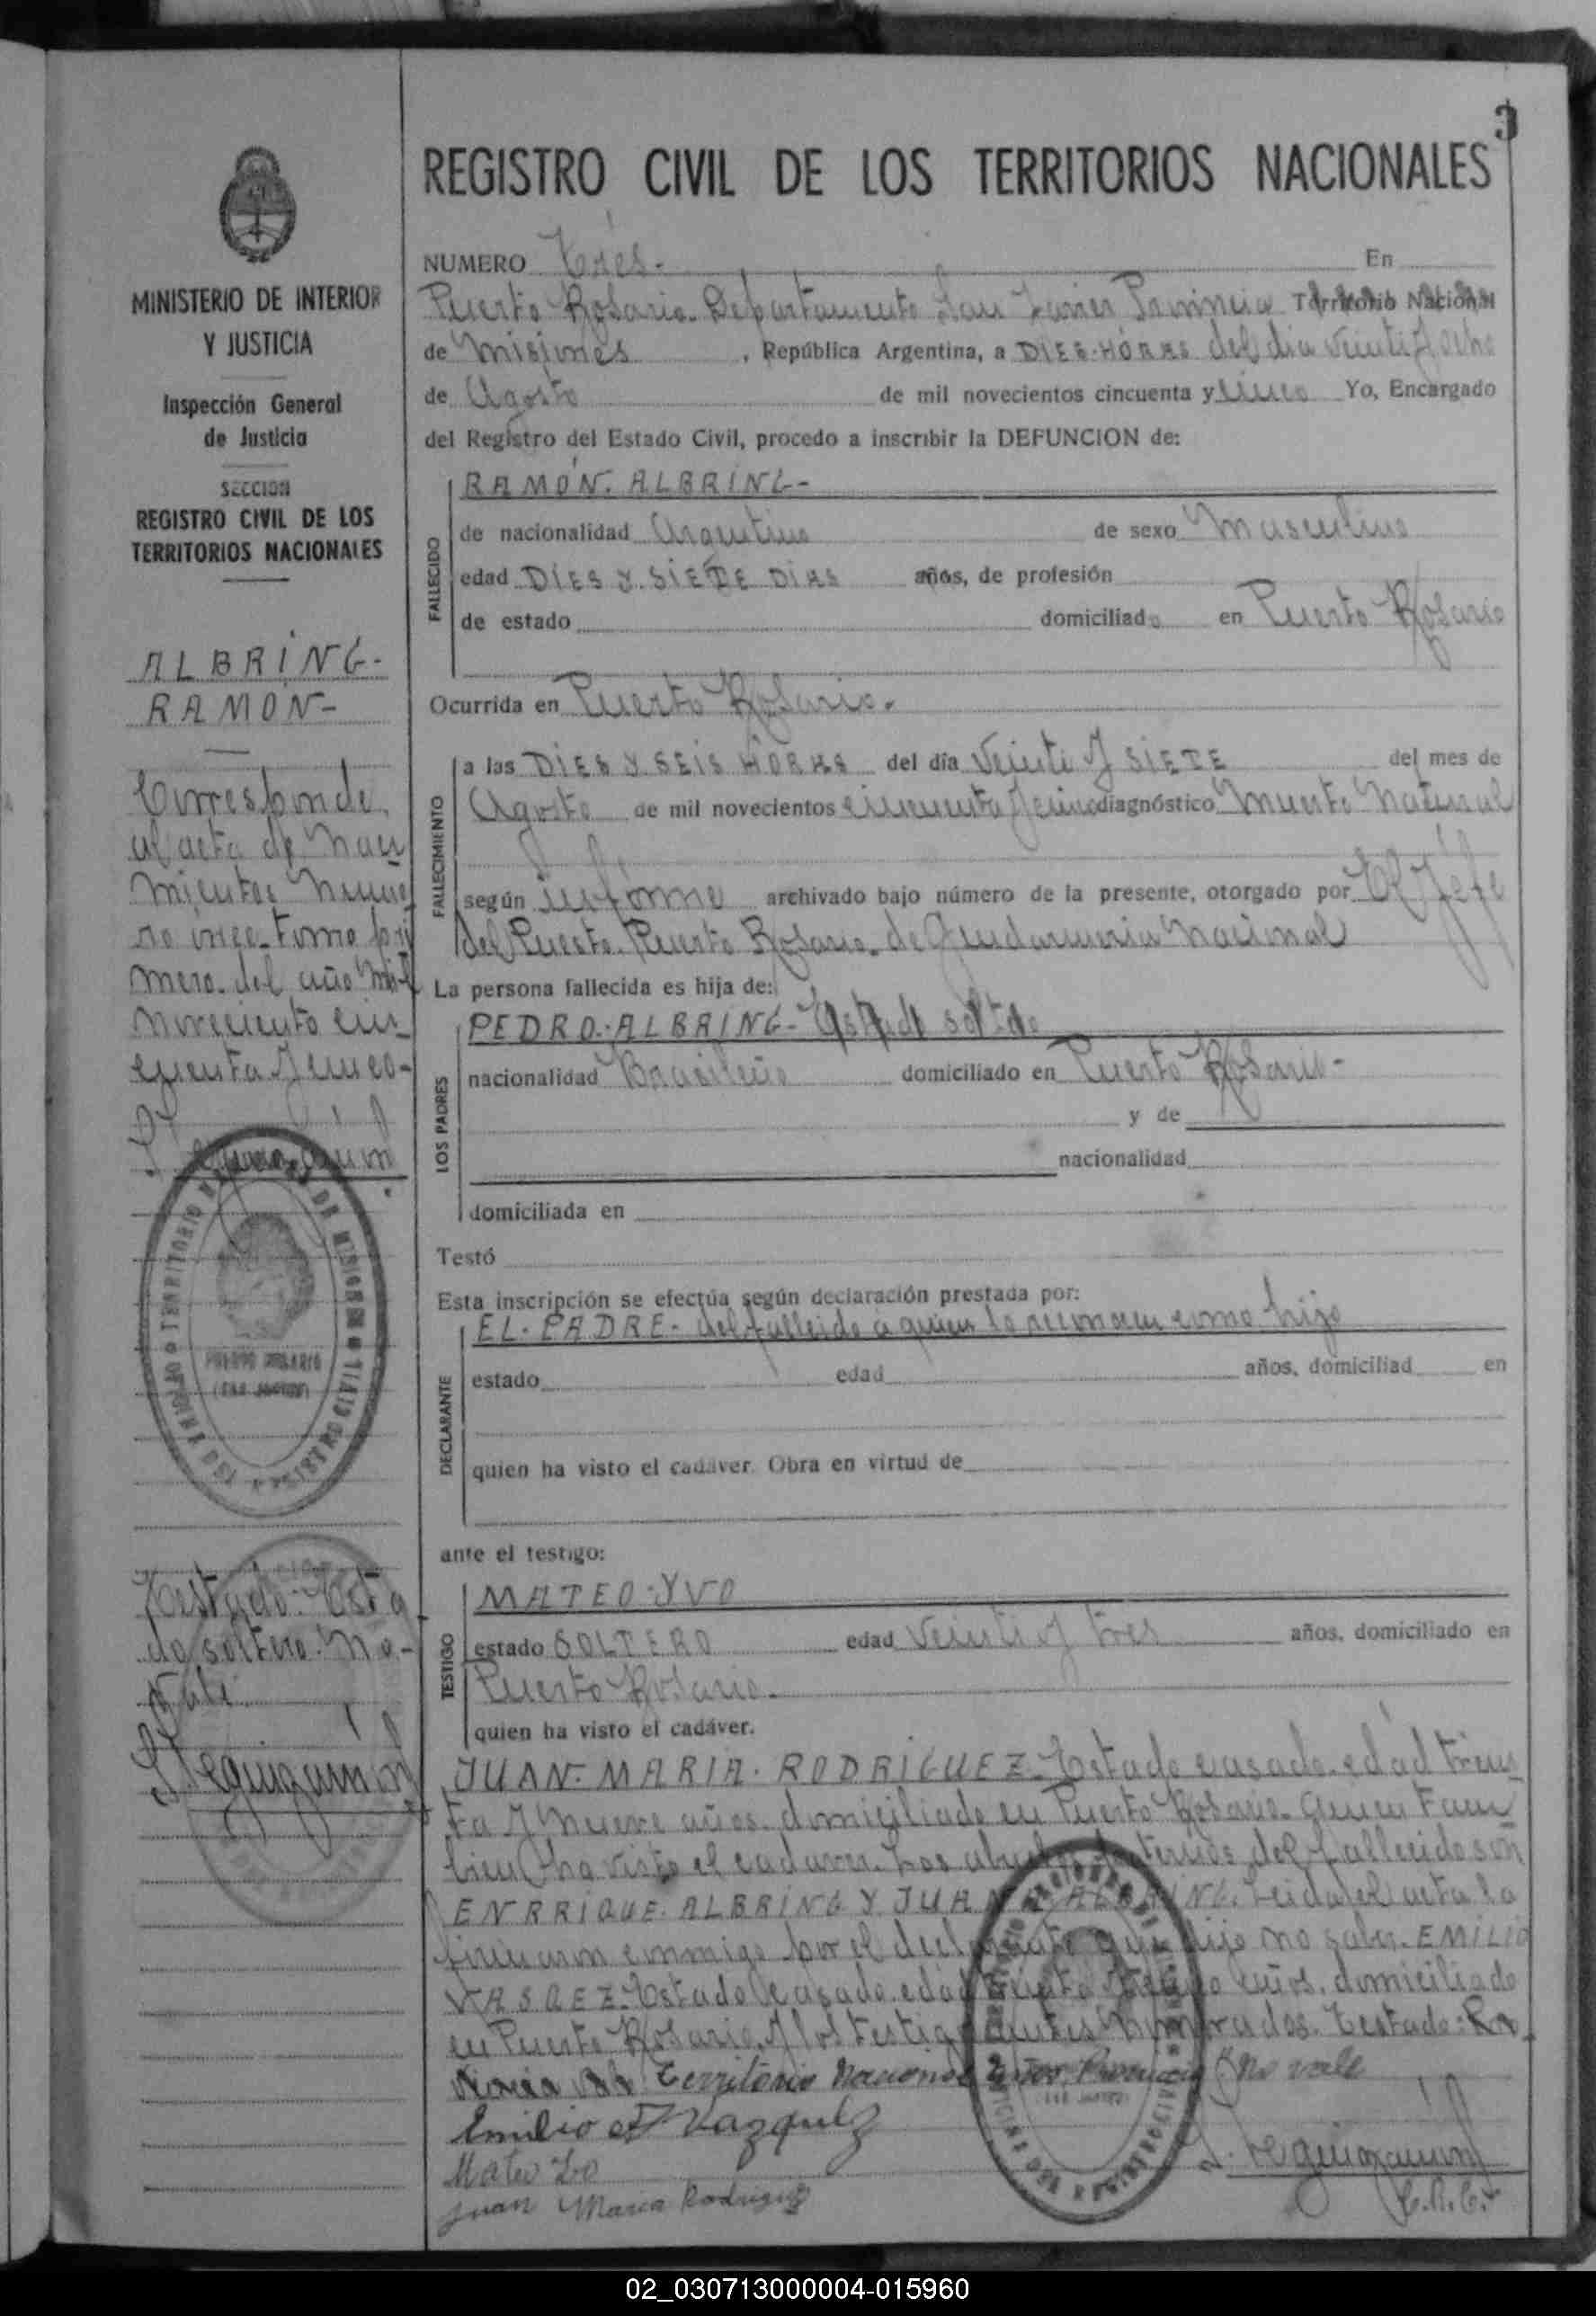 3
REGISTRO CIVIL DE LOS TERRITORIOS NACIONALES
MINISTERIO DE INTERIOR
Y JUSTICIA
Inspección General
de Justicia
SECCION
REGISTRO CIVIL DE LOS
TERRITORIOS NACIONALES
ALBRING-
RAMON-
Corresponde
al acta de naci
mientos nume
ro once tomo pri
mero del año mil
noveciento cin
cuenta y cinco-
PUERTO ROSARIO
(SAN JAVIER)
Testado: Esta
do soltero: No-
Vale
NUMERO Tres. En
Puerto Rosario. Departamento San Javier Provincia Territorio Nacional
de Misiones, República Argentina, a DIES HORAS del dia Veinti y ocho
de Agosto de mil novecientos cincuenta y cinco Yo, Encargado
del Registro del Estado Civil, procedo a inscribir la DEFUNCION de:
FALLECIDO
RAMÓN. ALBRING-
de nacionalidad Argentino de sexo Masculino
edad DIES Y SIETE DIAS años, de profesión
de estado domiciliado en Puerto Rosario
Ocurrida en Puerto Rosario.
FALLECIMIENTO
a las DIES Y SEIS HORAS del día Veinti y SIETE del mes de
Agosto de mil novecientos cincuenta y cinco diagnóstico Muerte Natural
según informe archivado bajo número de la presente, otorgado por El Jefe
del Puesto. Puerto Rosario. de Gendarmeria Nacional
La persona fallecida es hija de:
LOS PADRES
PEDRO. ALBRING- Estado solte
nacionalidad Brasileño domiciliado en Puerto Rosario-
y de
nacionalidad
domiciliada en
Testó
Esta inscripción se efectúa según declaración prestada por:
DECLARANTE
EL. PADRE- del fallecido a quien lo reconocen como hijo
estado edad años, domiciliad en
quien ha visto el cadáver. Obra en virtud de
ante el testigo:
TESTIGO
MATEO. YVO
estado SOLTERO edad Veinti y tres años, domiciliado en
Puerto Rosario.
quien ha visto el cadáver.
JUAN. MARIA. RODRIGUEZ- Estado casado. edad trein
ta y nueve años. domiciliado en Puerto Rosario. quien tam
bien ha visto el cadaver. Los abuelos del fallecido son
ENRRIQUE. ALBRING Y JUANA ALBRING. Leida el acta la
firmaron conmigo por el declarante que dijo no saber. EMILIO
VASQEZ. Estado casado. edad años. domiciliado
en Puerto Rosario. y los testigos antes nombrados. Testado:
Territorio Nacional Provincia No vale
Emilio Vazquez
Mateo Ivo
Juan Maria Rodriguez
02_030713000004-015960